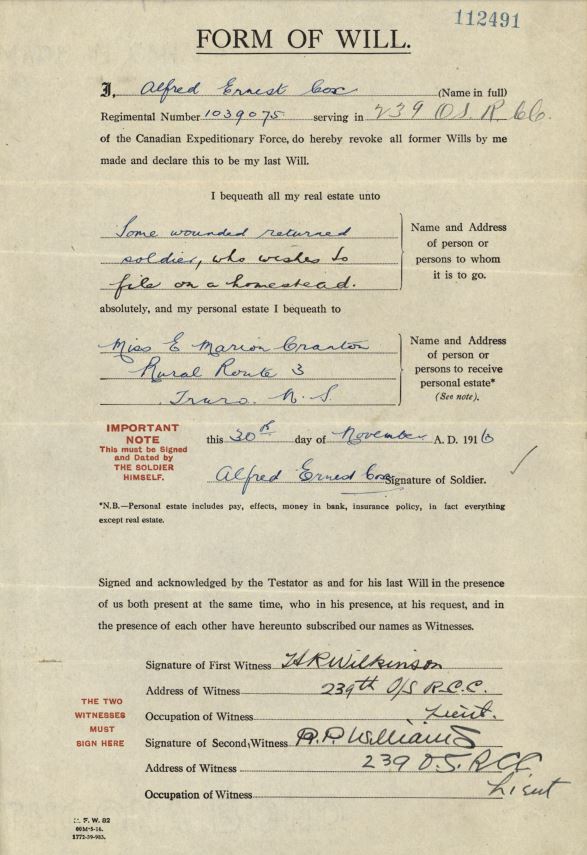 112491
FORM OF WILL.
I, Alfred Ernest Cox (Name in full)
Regimental Number 1039075 serving in 239 O.S. R
of the Canadian Expeditionary Force, do hereby revoke all former Wills by me
made and declare this to be my last Will.
I bequeath all my real estate unto
Some wounded returned
soldier, who wishes to
file on a homestead.
Name and Address
of person or
persons to whom
it is to go.
absolutely, and my personal estate I bequeath to
Miss E Marion Cranton
Rural Route 3
Truro. N. S.
Name and Address
of person or
persons to receive
personal estate*
(See note).
IMPORTANT
NOTE
This must be Signed
and Dated by
THE SOLDIER
HIMSELF.
this 30th day of November A. D. 1916
Alfred Ernest Cox Signature of Soldier.
*N.B.—Personal estate includes pay, effects, money in bank, insurance policy, in fact everything
except real estate.
Signed and acknowledged by the Testator as and for his last Will in the presence
of us both present at the same time, who in his presence, at his request, and in
the presence of each other have hereunto subscribed our names as Witnesses.
THE TWO
WITNESSES
MUST
SIGN HERE
Signature of First Witness H R Wilkinson
Address of Witness 239th O/S R.C.C.
Occupation of Witness Lieut.
Signature of Second Witness R.P. Williams
Address of Witness 239 O.S. R.C.C.
Occupation of Witness Lieut
M. F. W. 82
600M-5-16.
1772-39-983.